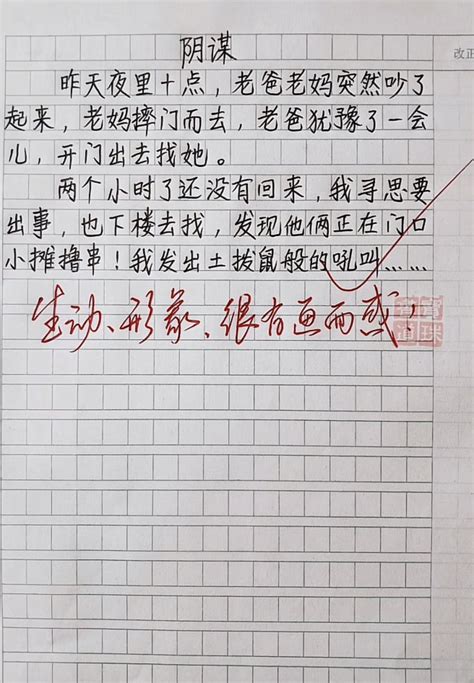 改正
阴谋
昨天夜里十点，老爸老妈突然吵了
起来，老妈摔门而去，老爸犹豫了一会
儿，开门出去找她。
两个小时了还没有回来，我寻思要
出事，也下楼去找，发现他俩正在门口
小摊撸串！我发出土拔鼠般的吼叫……
生动、形象、很有画面感！